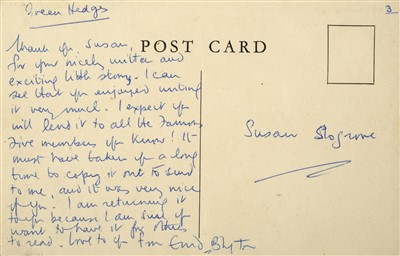 Green Hedges
3
POST CARD
Thank you, Susan,
for your nicely written and
exciting little story. I can
see that you enjoyed writing
it very much. I expect you
will lend it to all the Famous
Five members you know! It
must have taken you a long
time to copy it out to send
to me, and it was very nice
of you. I am returning it
to you because I am sure you
want to have it for others
to read. Love to you from Enid Blyton
Susan Slogrove